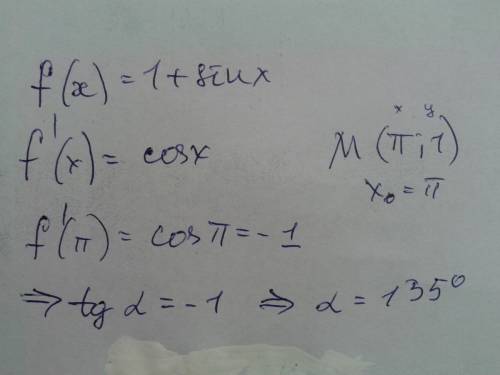 f(x) = 1 + sin x
f'(x) = cos x
x y
M (π; 1)
x₀ = π
f'(π) = cos π = -1
⇒ tg α = -1 ⇒ α = 135°